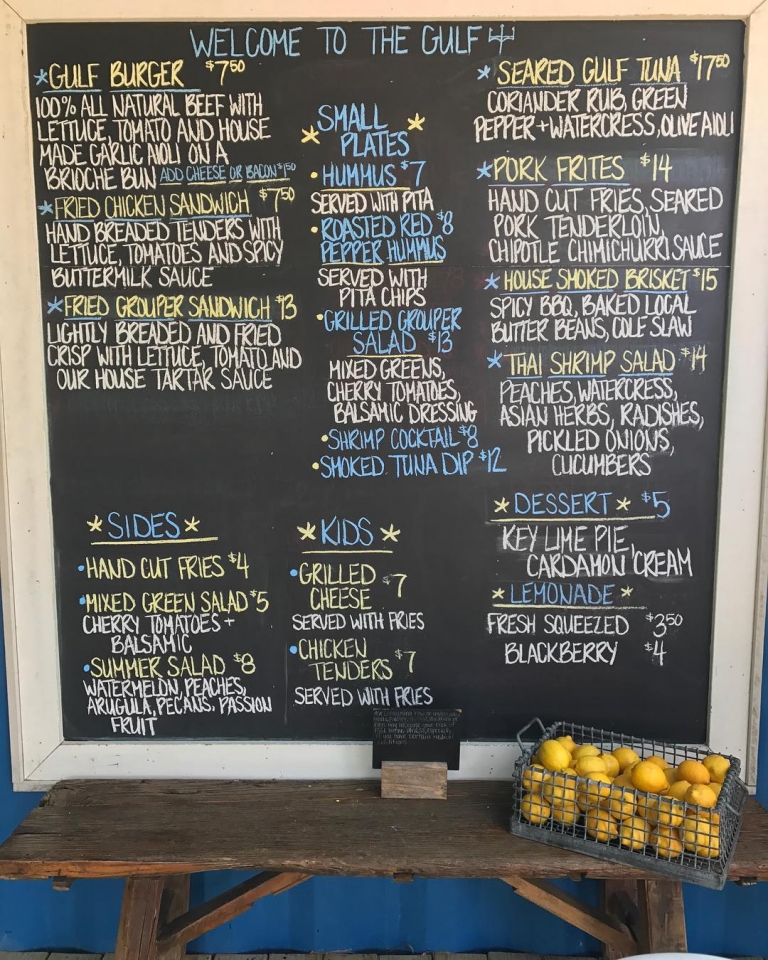 WELCOME TO THE GULF
GULF BURGER $7.50
100% ALL NATURAL BEEF WITH
LETTUCE, TOMATO AND HOUSE
MADE GARLIC AIOLI ON A
BRIOCHE BUN ADD CHEESE OR BACON $1.50
FRIED CHICKEN SANDWICH $7.50
HAND BREADED TENDERS WITH
LETTUCE, TOMATOES AND SPICY
BUTTERMILK SAUCE
FRIED GROUPER SANDWICH $13
LIGHTLY BREADED AND FRIED
CRISP WITH LETTUCE, TOMATO AND
OUR HOUSE TARTAR SAUCE
SMALL
PLATES
HUMMUS $7
SERVED WITH PITA
ROASTED RED $8
PEPPER HUMMUS
SERVED WITH
PITA CHIPS
GRILLED GROUPER
SALAD $13
MIXED GREENS,
CHERRY TOMATOES,
BALSAMIC DRESSING
SHRIMP COCKTAIL $8
SMOKED TUNA DIP $12
SEARED GULF TUNA $17.50
CORIANDER RUB, GREEN
PEPPER + WATERCRESS, OLIVE AIOLI
PORK FRITES $14
HAND CUT FRIES, SEARED
PORK TENDERLOIN,
CHIPOTLE CHIMICHURRI SAUCE
HOUSE SMOKED BRISKET $15
SPICY BBQ, BAKED LOCAL
BUTTER BEANS, COLE SLAW
THAI SHRIMP SALAD $14
PEACHES, WATERCRESS,
ASIAN HERBS, RADISHES,
PICKLED ONIONS,
CUCUMBERS
SIDES
HAND CUT FRIES $4
MIXED GREEN SALAD $5
CHERRY TOMATOES +
BALSAMIC
SUMMER SALAD $8
WATERMELON, PEACHES,
ARUGULA, PECANS, PASSION
FRUIT
KIDS
GRILLED
CHEESE $7
SERVED WITH FRIES
CHICKEN
TENDERS $7
SERVED WITH FRIES
DESSERT $5
KEY LIME PIE,
CARDAMON CREAM
LEMONADE
FRESH SQUEEZED $3.50
BLACKBERRY $4